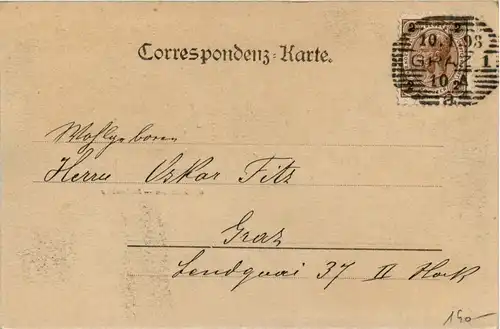 Correspondenz-Karte.
2 2
10.1.98
GRAZ 1
10 A
2 2
Wohlgeboren
Herrn Oskar Fitz
Graz
Lendquai 37 II Stock
150